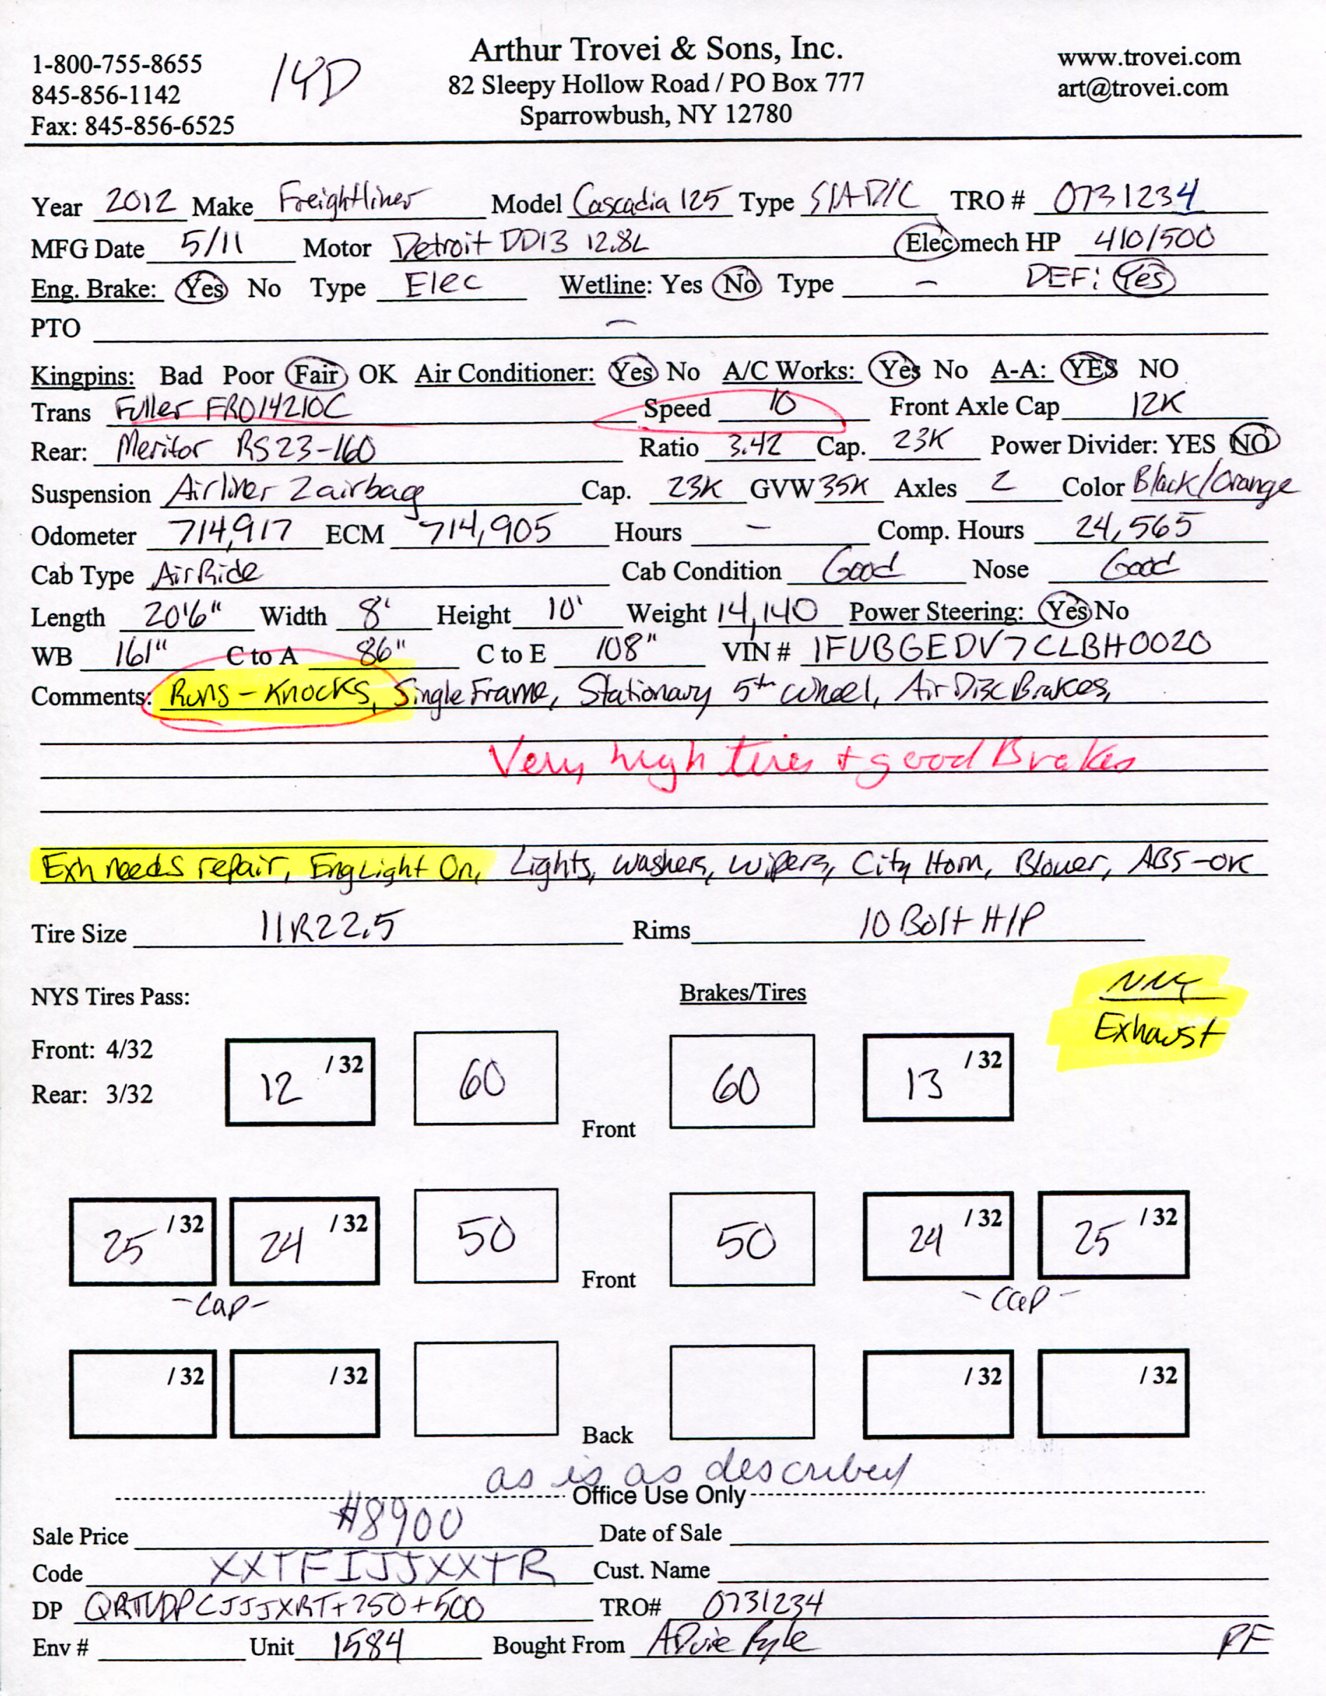 1-800-755-8655
845-856-1142
Fax: 845-856-6525
14D
Arthur Trovei & Sons, Inc.
82 Sleepy Hollow Road / PO Box 777
Sparrowbush, NY 12780
www.trovei.com
art@trovei.com
Year 2012 Make Freightliner Model Cascadia 125 Type S/A D/C TRO # 0731234
MFG Date 5/11 Motor Detroit DD13 12.8L Elec mech HP 410/500
Eng. Brake: Yes No Type Elec Wetline: Yes No Type - DEF: Yes
PTO -
Kingpins: Bad Poor Fair OK Air Conditioner: Yes No A/C Works: Yes No A-A: YES NO
Trans Fuller FRO14210C Speed 10 Front Axle Cap 12K
Rear: Meritor RS23-160 Ratio 3.42 Cap. 23K Power Divider: YES NO
Suspension Airliner 2 airbag Cap. 23K GVW 35K Axles 2 Color Black/Orange
Odometer 714,917 ECM 714,905 Hours - Comp. Hours 24,565
Cab Type AirRide Cab Condition Good Nose Good
Length 20'6" Width 8' Height 10' Weight 14,140 Power Steering: Yes No
WB 161" C to A 86" C to E 108" VIN # 1FUBGEDV7CLBH0020
Comments: Runs - Knocks, Single Frame, Stationary 5th Wheel, Air Disc Brakes,
Very high tires + good Brakes
Exh needs repair, Eng Light On, Lights, Washers, Wipers, City Horn, Blower, ABS-OK
Tire Size 11R22.5 Rims 10 Bolt H/P
NYS Tires Pass: Brakes/Tires
Exhaust
Front: 4/32
Rear: 3/32
12 /32 60 Front 60 13 /32
25 /32 24 /32 50 Front 50 24 /32 25 /32
-Cap- -Cap-
/32 /32 Back /32 /32
as is as described
Office Use Only
Sale Price #8900 Date of Sale
Code XXTFIJJXXTR Cust. Name
DP TRO# 0731234
Env # Unit 1584 Bought From